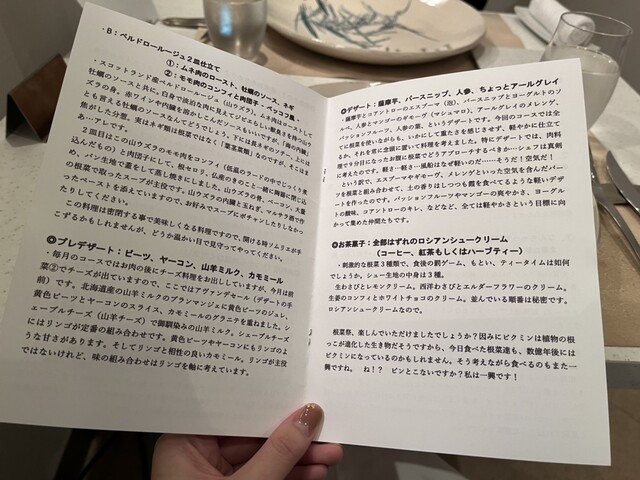 ・B：ペルドロールージュ２皿仕立て
①：ムネ肉のロースト、牡蠣のソース、ネギ
②：モモ肉のコンフィと肉団子、ペッコフェ
・スコットランド産ペルドロールージュ（山ウズラ）。ムネ肉はローストして
牡蠣のソースと共に。白身で淡泊な肉に見えてジビエらしい獣臭さを持つ山ウ
ズラの身。赤ワインや内臓を溶かしこんだソースもいいですが、「海の内臓」
とも言える牡蠣のソースなんてどうでしょう。下には長ネギのソテー、上には
焦がした分葱。実はネギ類は根菜ではなく「葉茎菜類」なのですが、そこはま
あ…アレです。
２皿目はこの山ウズラのモモ肉をコンフィ（低温のラードの中でじっくり煮
込んだもの）と肉団子にして、根セロリ、仏産のきのこと一緒に陶器に閉じ込
め、パン生地で蓋をして蒸し焼きにしました。山ウズラの骨、ベーコン、大量
の根菜で取ったスープが主役です。山ウズラの内臓と玉ねぎ、マルサラ酒で作
ったペーストを添えていますので、お好みでスープにポチャンしたりしなかっ
たりしてください。
この料理は密閉する事で美味しくなる料理ですので、開ける時ソムリエが手
こずるかもしれませんが、どうか温かい目で見守ってやってください。
◎プレデザート：ビーツ、ヤーコン、山羊ミルク、カモミール
・毎月のコースではお肉の後にチーズ料理をお出ししていますが、今月は前
菜②でチーズが出ていますので、ここではアヴァンデセール（デザートの手
前）です。北海道産の山羊ミルクのブランマンジェに黄色ビーツのジュレ、
黄色ビーツとヤーコンのスライス、カモミールのグラニテを重ねました。シ
ェーブルチーズ（山羊チーズ）で御馴染みの山羊ミルク。シェーブルチーズ
にはリンゴが定番の組み合わせです。黄色ビーツやヤーコンにもリンゴのよ
うな甘さがあります。そしてリンゴと相性の良いカモミール。リンゴが主役
ではないけれど、味の組み合わせはリンゴを軸に考えています。
◎デザート：薩摩芋、パースニップ、人参、ちょっとアールグレイ
・薩摩芋とコアントローのエスプーマ（泡）、パースニップとヨーグルトのソ
ルベ、人参とマンゴーのギモーヴ（マシュマロ）、アールグレイのメレンゲ、
パッションフルーツ、人参の葉、というデザートです。今回のコースでは全
てに根菜を使いながらも、いかにして重たさを感じさせず、軽やかに仕立て
るか、それを常に念頭に置いて料理を考えました。特にデザートでは、肉料
理で９分目になったお腹に根菜でどうアプローチするべきか…シェフは真剣
に考えたのです。軽さ…軽さ…風船はなぜ軽いのか……そうだ！空気だ！
という訳で、エスプーマやギモーヴ、メレンゲといった空気を含んだパー
ツを根菜と絡み合わせて、土の香りはしつつも霞を食べてるような軽いデザ
ートを作ったのです。パッションフルーツやマンゴーの爽やかさ、ヨーグル
トの酸味、コアントローのキレ、などなど、全ては軽やかさという目標に向
かって集めた仲間たちです。
◎お茶菓子：全部はずれのロシアンシュークリーム
（コーヒー、紅茶もしくはハーブティー）
・刺激的な根菜３種類で、食後の罰ゲーム、もとい、ティータイムは如何
でしょうか。シュー生地の中身は３種。
生わさびとレモンクリーム。西洋わさびとエルダーフラワーのクリーム。
生姜のコンフィとホワイトチョコのクリーム。並んでいる順番は秘密です。
ロシアンシュークリームなので。
根菜祭、楽しんでいただけましたでしょうか？因みにピクミンは植物の根
っこが進化した生き物だそうですから、今日食べた根菜達も、数億年後には
ピクミンになっているのかもしれません。そう考えながら食べるのもまた一
興ですね。　ね！？　ピンとこないですか？私は一興です！